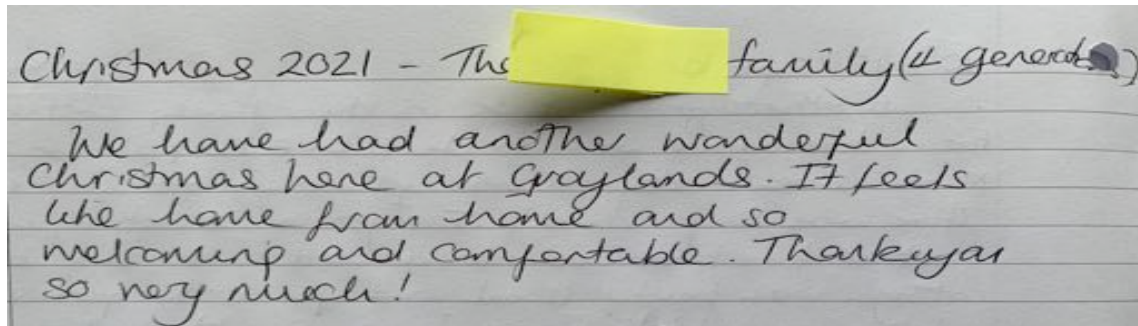 Christmas 2021 - The family (4 generations)
We have had another wonderful
Christmas here at Graylands. It feels
like home from home and so
welcoming and comfortable. Thankyou
so very much!